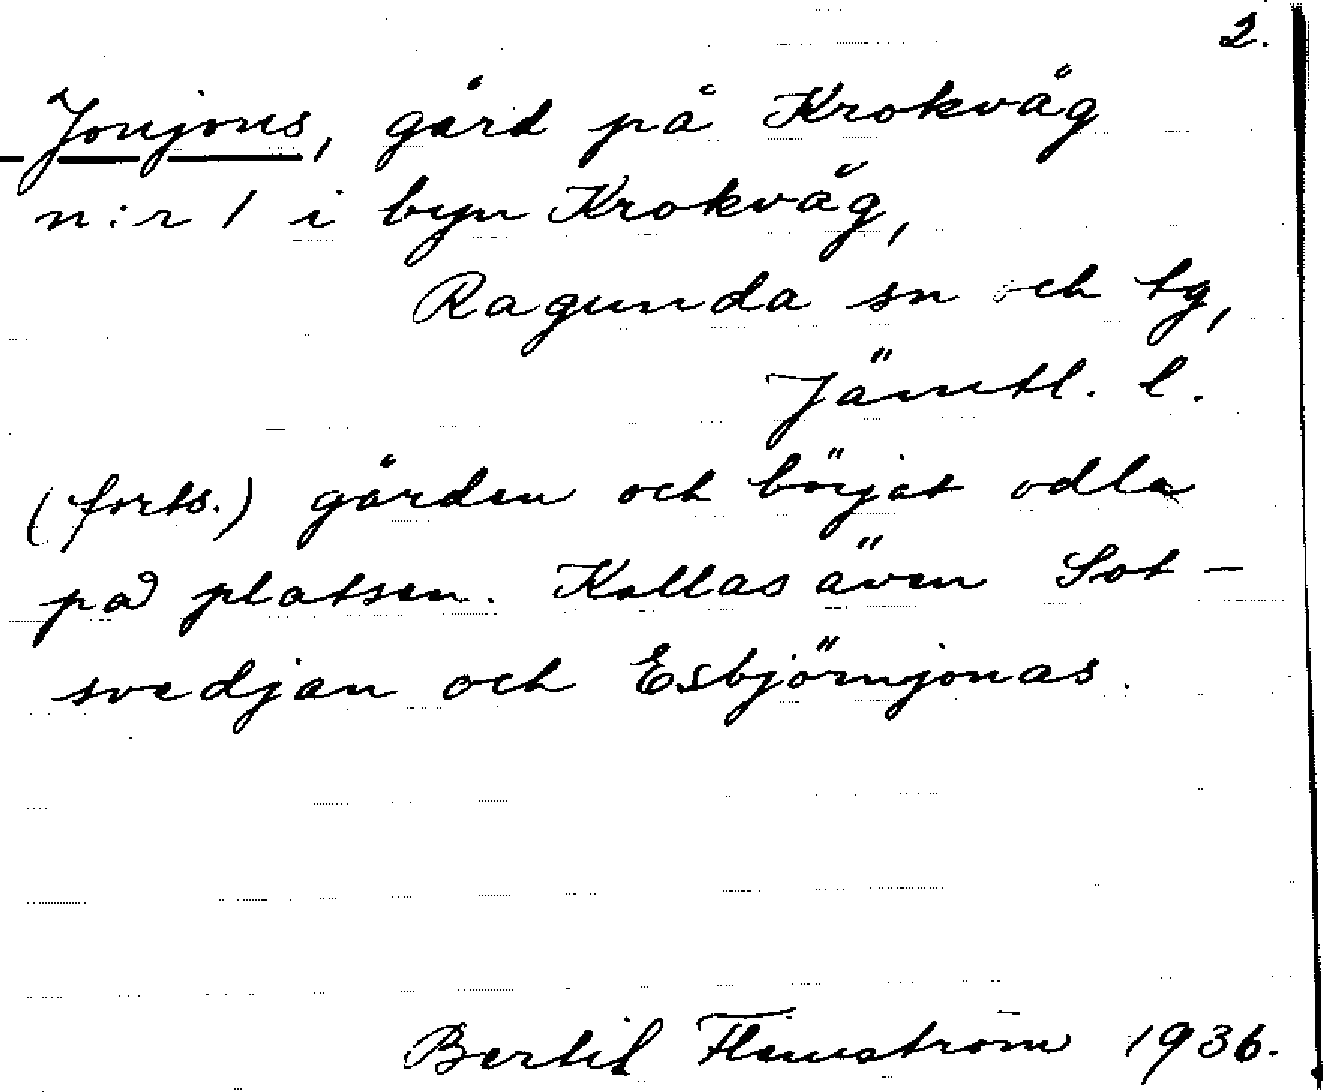 2.
Jonjons, gård på Krokvåg
n:r 1 i byn Krokvåg,
Ragunda sn och tg,
Jämtl. l.
(forts.) gården och börjat odla
på platsen. Kallas även Sot-
svedjan och Esbjörnjonas.
Bertil Flemström 1936.